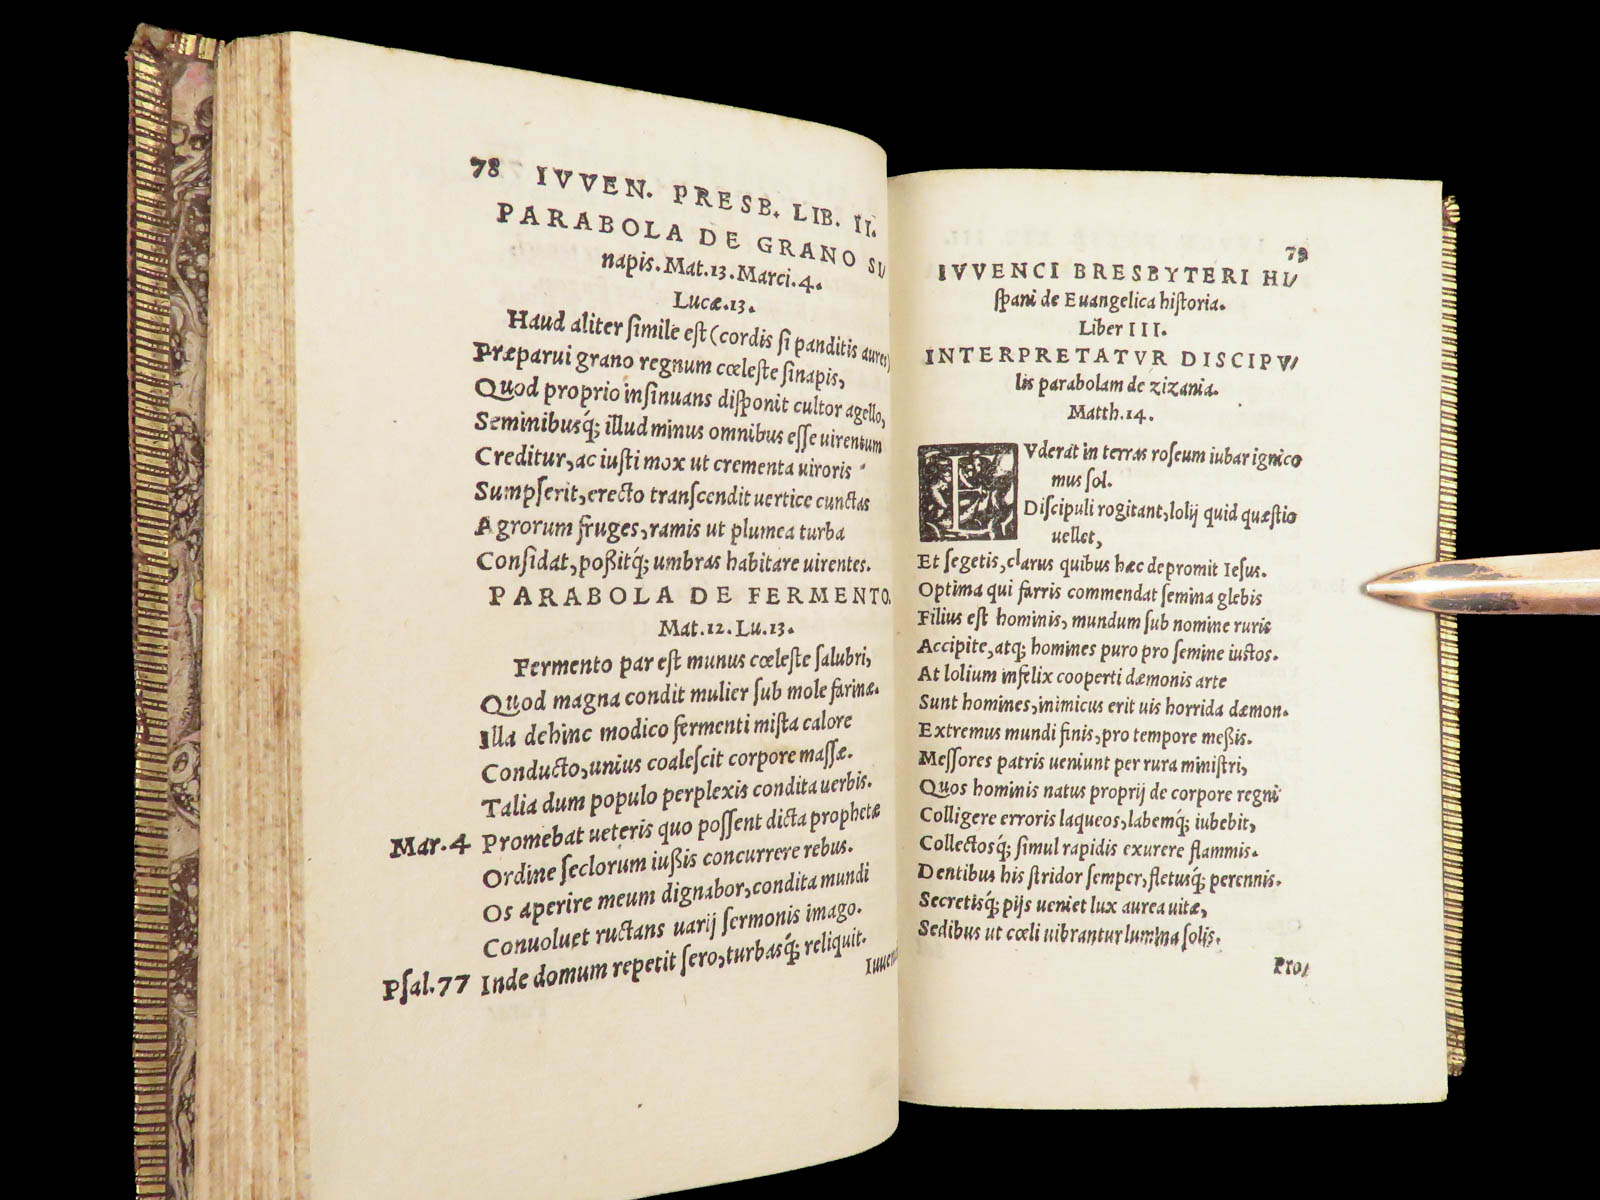 78 IVVEN. PRESB. LIB. II.
PARABOLA DE GRANO SI/
napis. Mat.13. Marci.4.
Lucæ.13.
Haud aliter ſimile eſt (cordis ſi panditis aures)
Præparui grano regnum cœleſte ſinapis,
Quod proprio inſinuans diſponit cultor agello,
Seminibusq́; illud minus omnibus eſſe uirentum
Creditur, ac iuſti mox ut crementa uiroris
Sumpſerit, erecto tranſcendit uertice cunctas
Agrorum fruges, ramis ut plumea turba
Conſidat, poßitq́; umbras habitare uirentes.
PARABOLA DE FERMENTO.
Mat.12. Lu.13.
Fermento par eſt munus cœleſte ſalubri,
Quod magna condit mulier ſub mole farinæ.
Illa dehinc modico fermenti miſta calore
Conducto, unius coaleſcit corpore maſſæ.
Talia dum populo perplexis condita uerbis.
Mar.4 Promebat ueteris quo poſſent dicta prophetæ
Ordine ſeclorum iußis concurrere rebus.
Os aperire meum dignabor, condita mundi
Conuoluet ructans uarij ſermonis imago.
Pſal.77 Inde domum repetit ſero, turbasq́; reliquit.
Iuuen
79
IVVENCI BRESBYTERI HI/
ſpani de Euangelica hiſtoria.
Liber III.
INTERPRETATVR DISCIPV/
lis parabolam de zizania.
Matth.14.
FVderat in terras roſeum iubar ignico
mus ſol.
Diſcipuli rogitant, lolij quid quæſtio
uellet,
Et ſegetis, clarus quibus hæc depromit Ieſus.
Optima qui farris commendat ſemina glebis
Filius eſt hominis, mundum ſub nomine ruris
Accipite, atq; homines puro pro ſemine iuſtos.
At lolium infelix cooperti dæmonis arte
Sunt homines, inimicus erit uis horrida dæmon.
Extremus mundi finis, pro tempore meßis.
Meſſores patris ueniunt per rura miniſtri,
Quos hominis natus proprij de corpore regni
Colligere erroris laqueos, labemq́; iubebit,
Collectosq́; ſimul rapidis exurere flammis.
Dentibus his ſtridor ſemper, fletusq́; perennis.
Secretisq́; pijs ueniet lux aurea uitæ,
Sedibus ut cœli uibrantur lumina ſolis.
Pro/